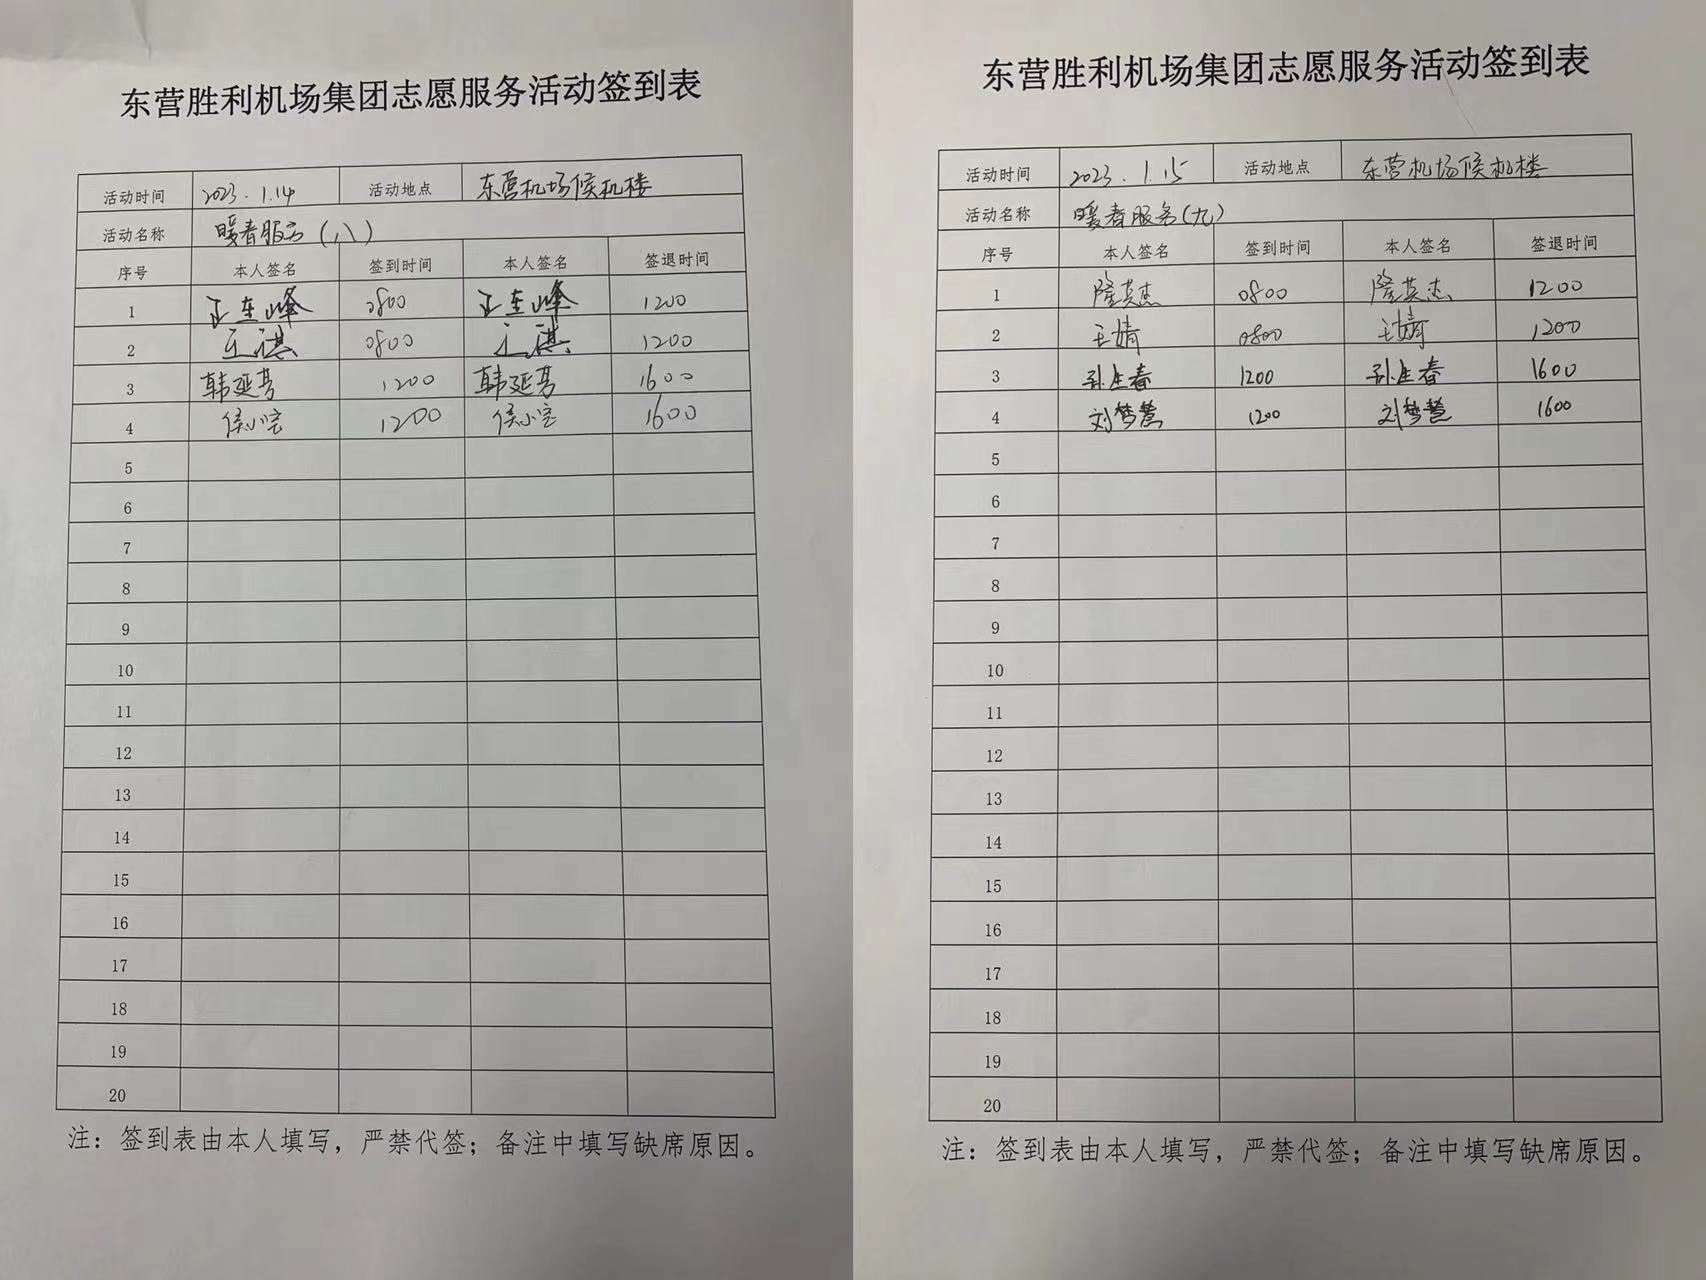 东营胜利机场集团志愿服务活动签到表
活动时间 2023.1.14 活动地点 东营机场候机楼
活动名称 暖春服务(八)
序号 本人签名 签到时间 本人签名 签退时间
1 0800 1200
2 王祺 0800 王祺 1200
3 韩延芳 1200 韩延芳 1600
4 侯小宝 1200 侯小宝 1600
5
6
7
8
9
10
11
12
13
14
15
16
17
18
19
20
注：签到表由本人填写，严禁代签；备注中填写缺席原因。
东营胜利机场集团志愿服务活动签到表
活动时间 2023.1.15 活动地点 东营机场候机楼
活动名称 暖春服务(九)
序号 本人签名 签到时间 本人签名 签退时间
1 隆英杰 0800 隆英杰 1200
2 王婧 0800 王婧 1200
3 孙生春 1200 孙生春 1600
4 刘梦慧 1200 刘梦慧 1600
5
6
7
8
9
10
11
12
13
14
15
16
17
18
19
20
注：签到表由本人填写，严禁代签；备注中填写缺席原因。